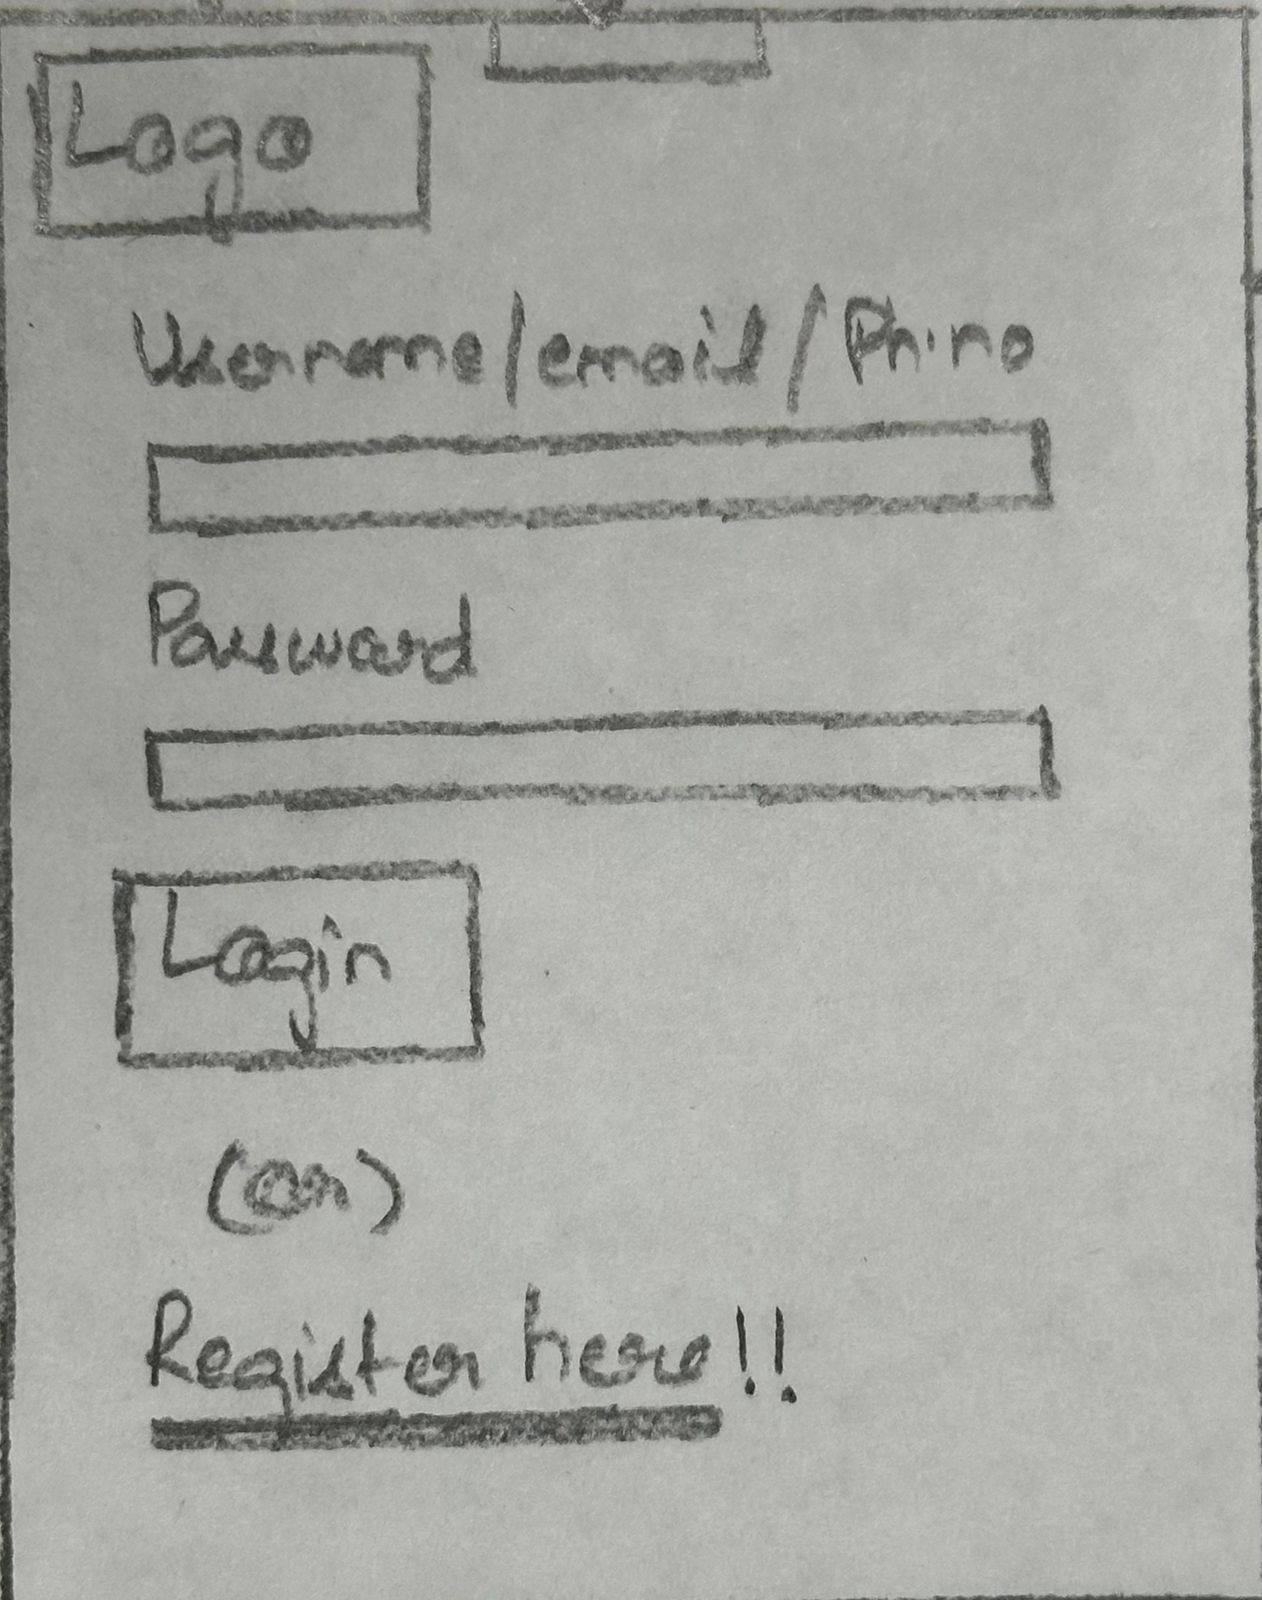 Logo
Username/email/Ph.no
Password
Login
(or)
Register here!!